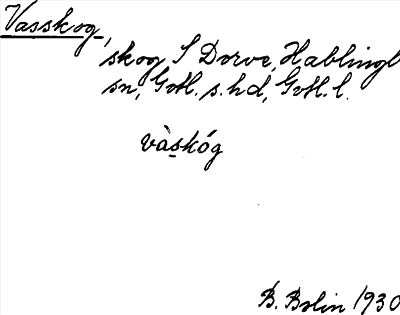 Vasskog,
skog S Dorve, Hablingb
sn, Gotl. s. hd, Gotl. l.
vàskóg
B. Bolin 1930